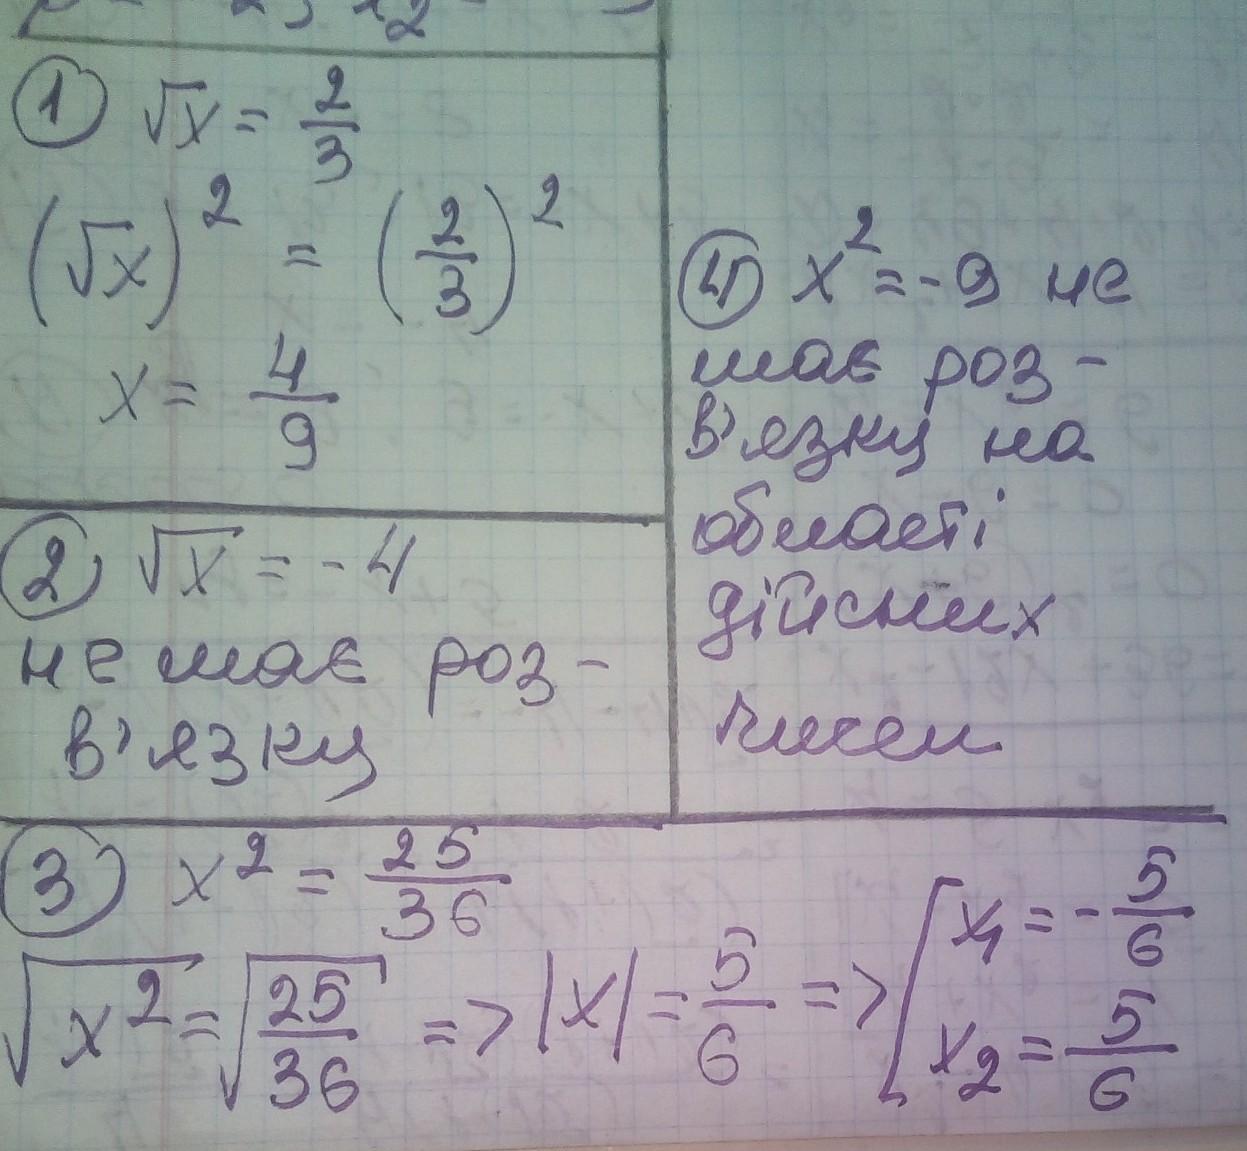 ① √x = 2/3
(√x)² = (2/3)²
x = 4/9
② √x = -4
не має роз-
в'язку
④ x² = -9 не
має роз-
в'язку на
області
дійсних
чисел
③ x² = 25/36
√x² = √25/36 => |x| = 5/6 => [x₁ = -5/6
x₂ = 5/6